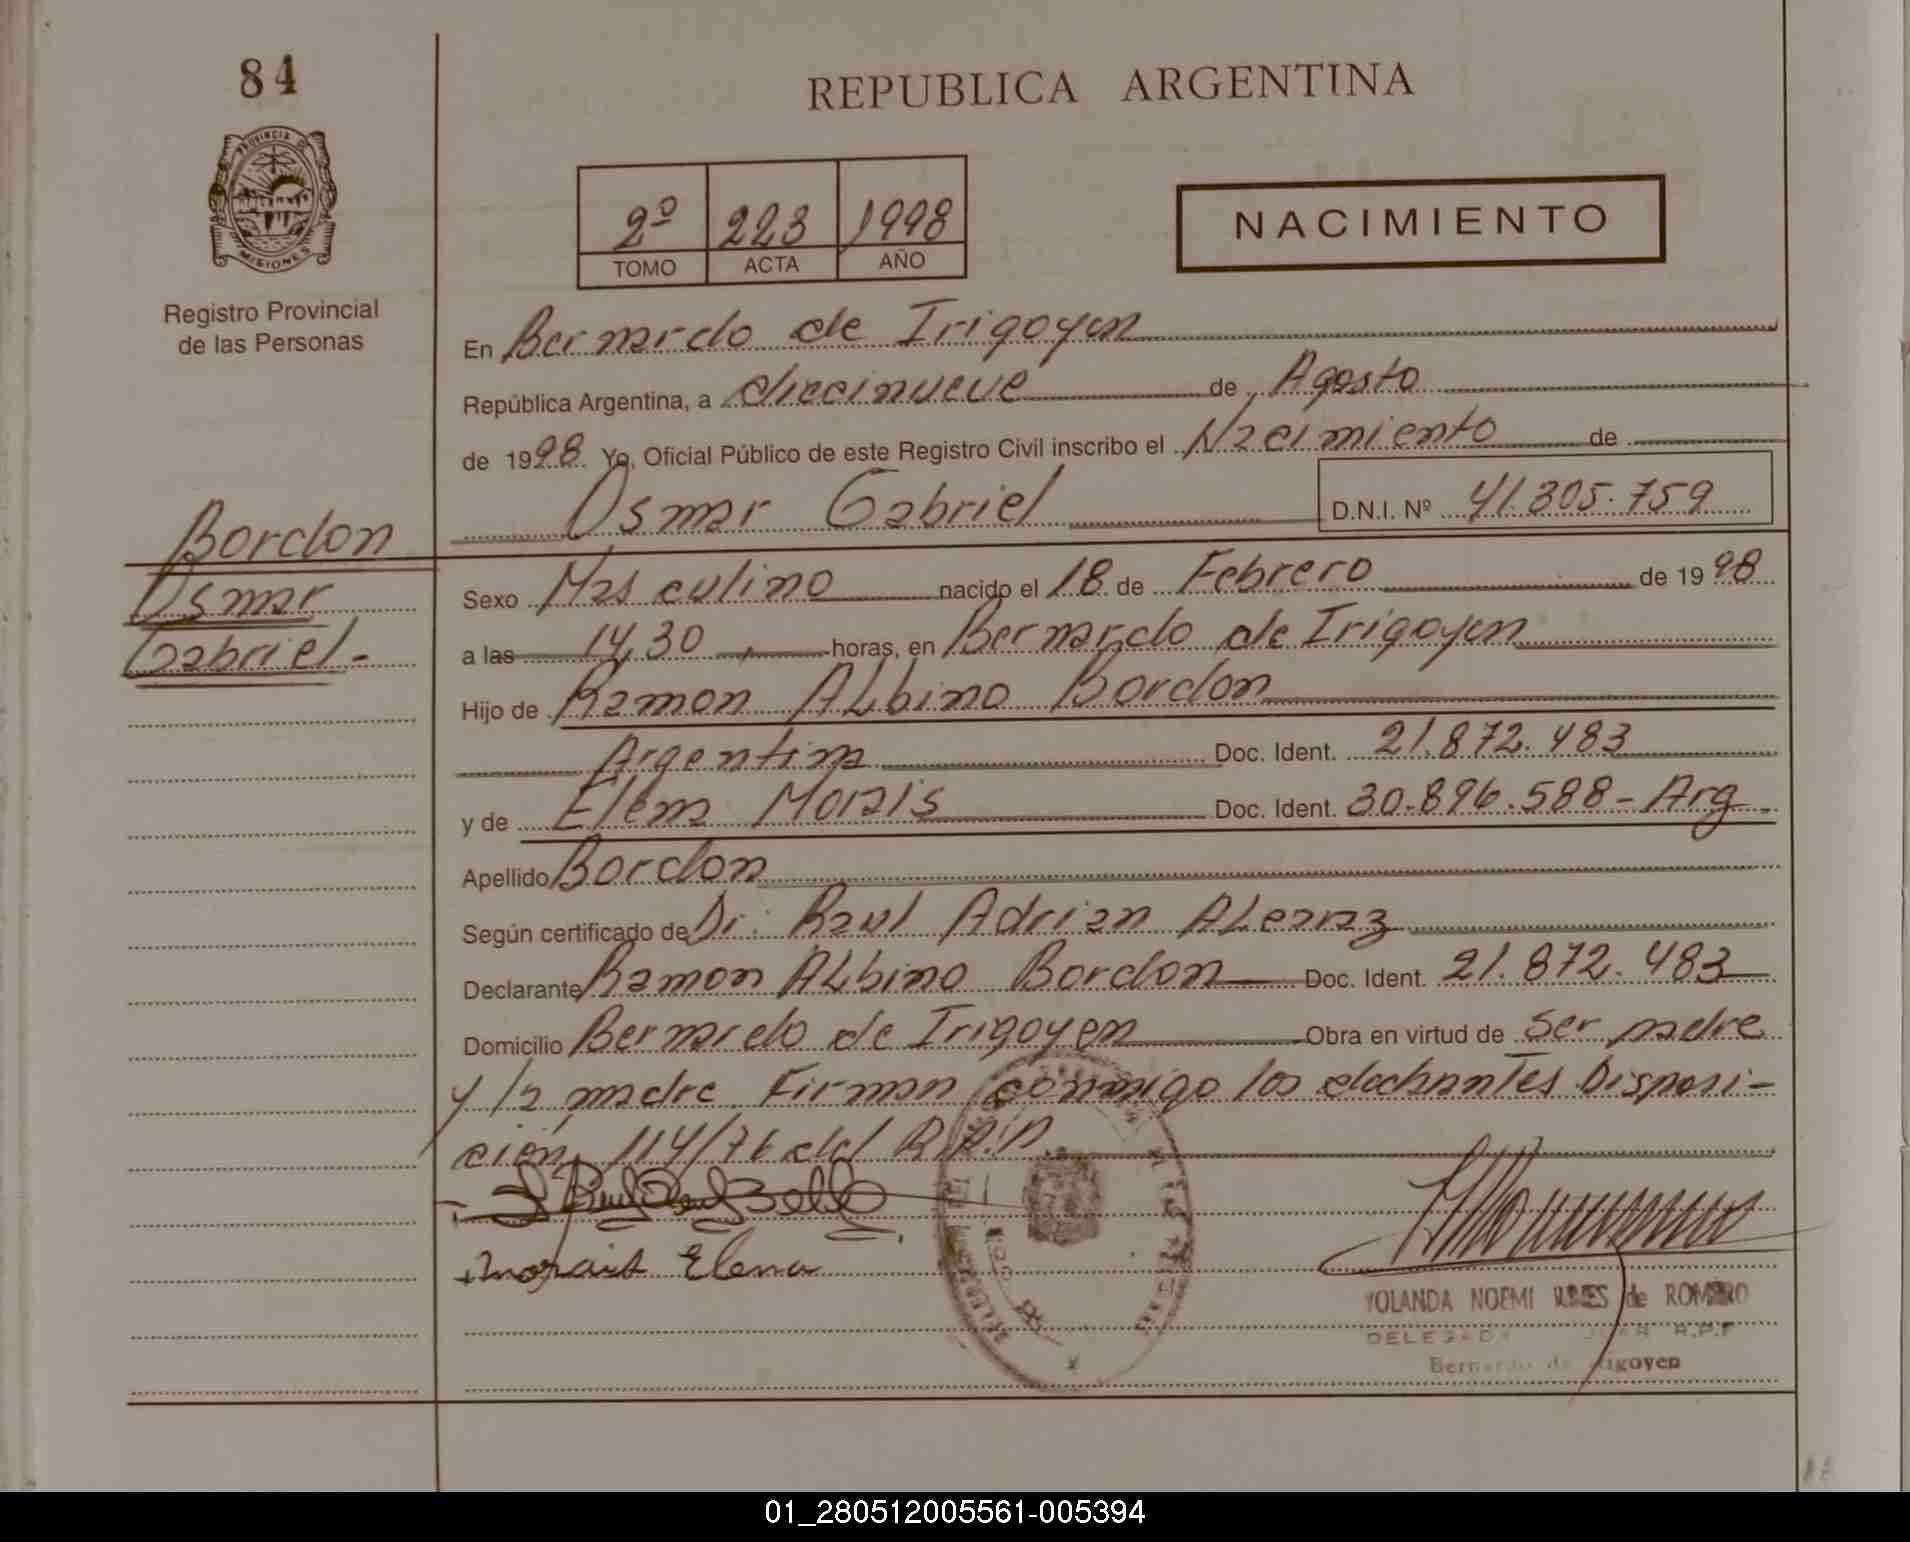 84
REPUBLICA ARGENTINA
PROVINCIA DE
MISIONES
Registro Provincial
de las Personas
2º 223 1998
TOMO ACTA AÑO
NACIMIENTO
En Bernardo de Irigoyen
República Argentina, a diecinueve de Agosto
de 1998 Yo, Oficial Público de este Registro Civil inscribo el Nacimiento de
Osmar Gabriel D.N.I. Nº 41.305.759
Bordon
Osmar
Gabriel-
Sexo Masculino nacido el 18 de Febrero de 1998
a las 14,30 horas, en Bernardo de Irigoyen
Hijo de Ramon Albino Bordon
Argentina Doc. Ident. 21.872.483
y de Elena Morais Doc. Ident. 30.896.588- Arg.
Apellido Bordon
Según certificado de Dr. Raul Adrian
Declarante Ramon Albino Bordon Doc. Ident. 21.872.483
Domicilio Bernardo de Irigoyen Obra en virtud de ser padre
y la madre. Firman conmigo los Disposi-
ción 114/76 del R.P.P.
morais Elena
YOLANDA NOEMI de ROMERO
DELEGADA R.P.P
Bernardo de Irigoyen
01_280512005561-005394